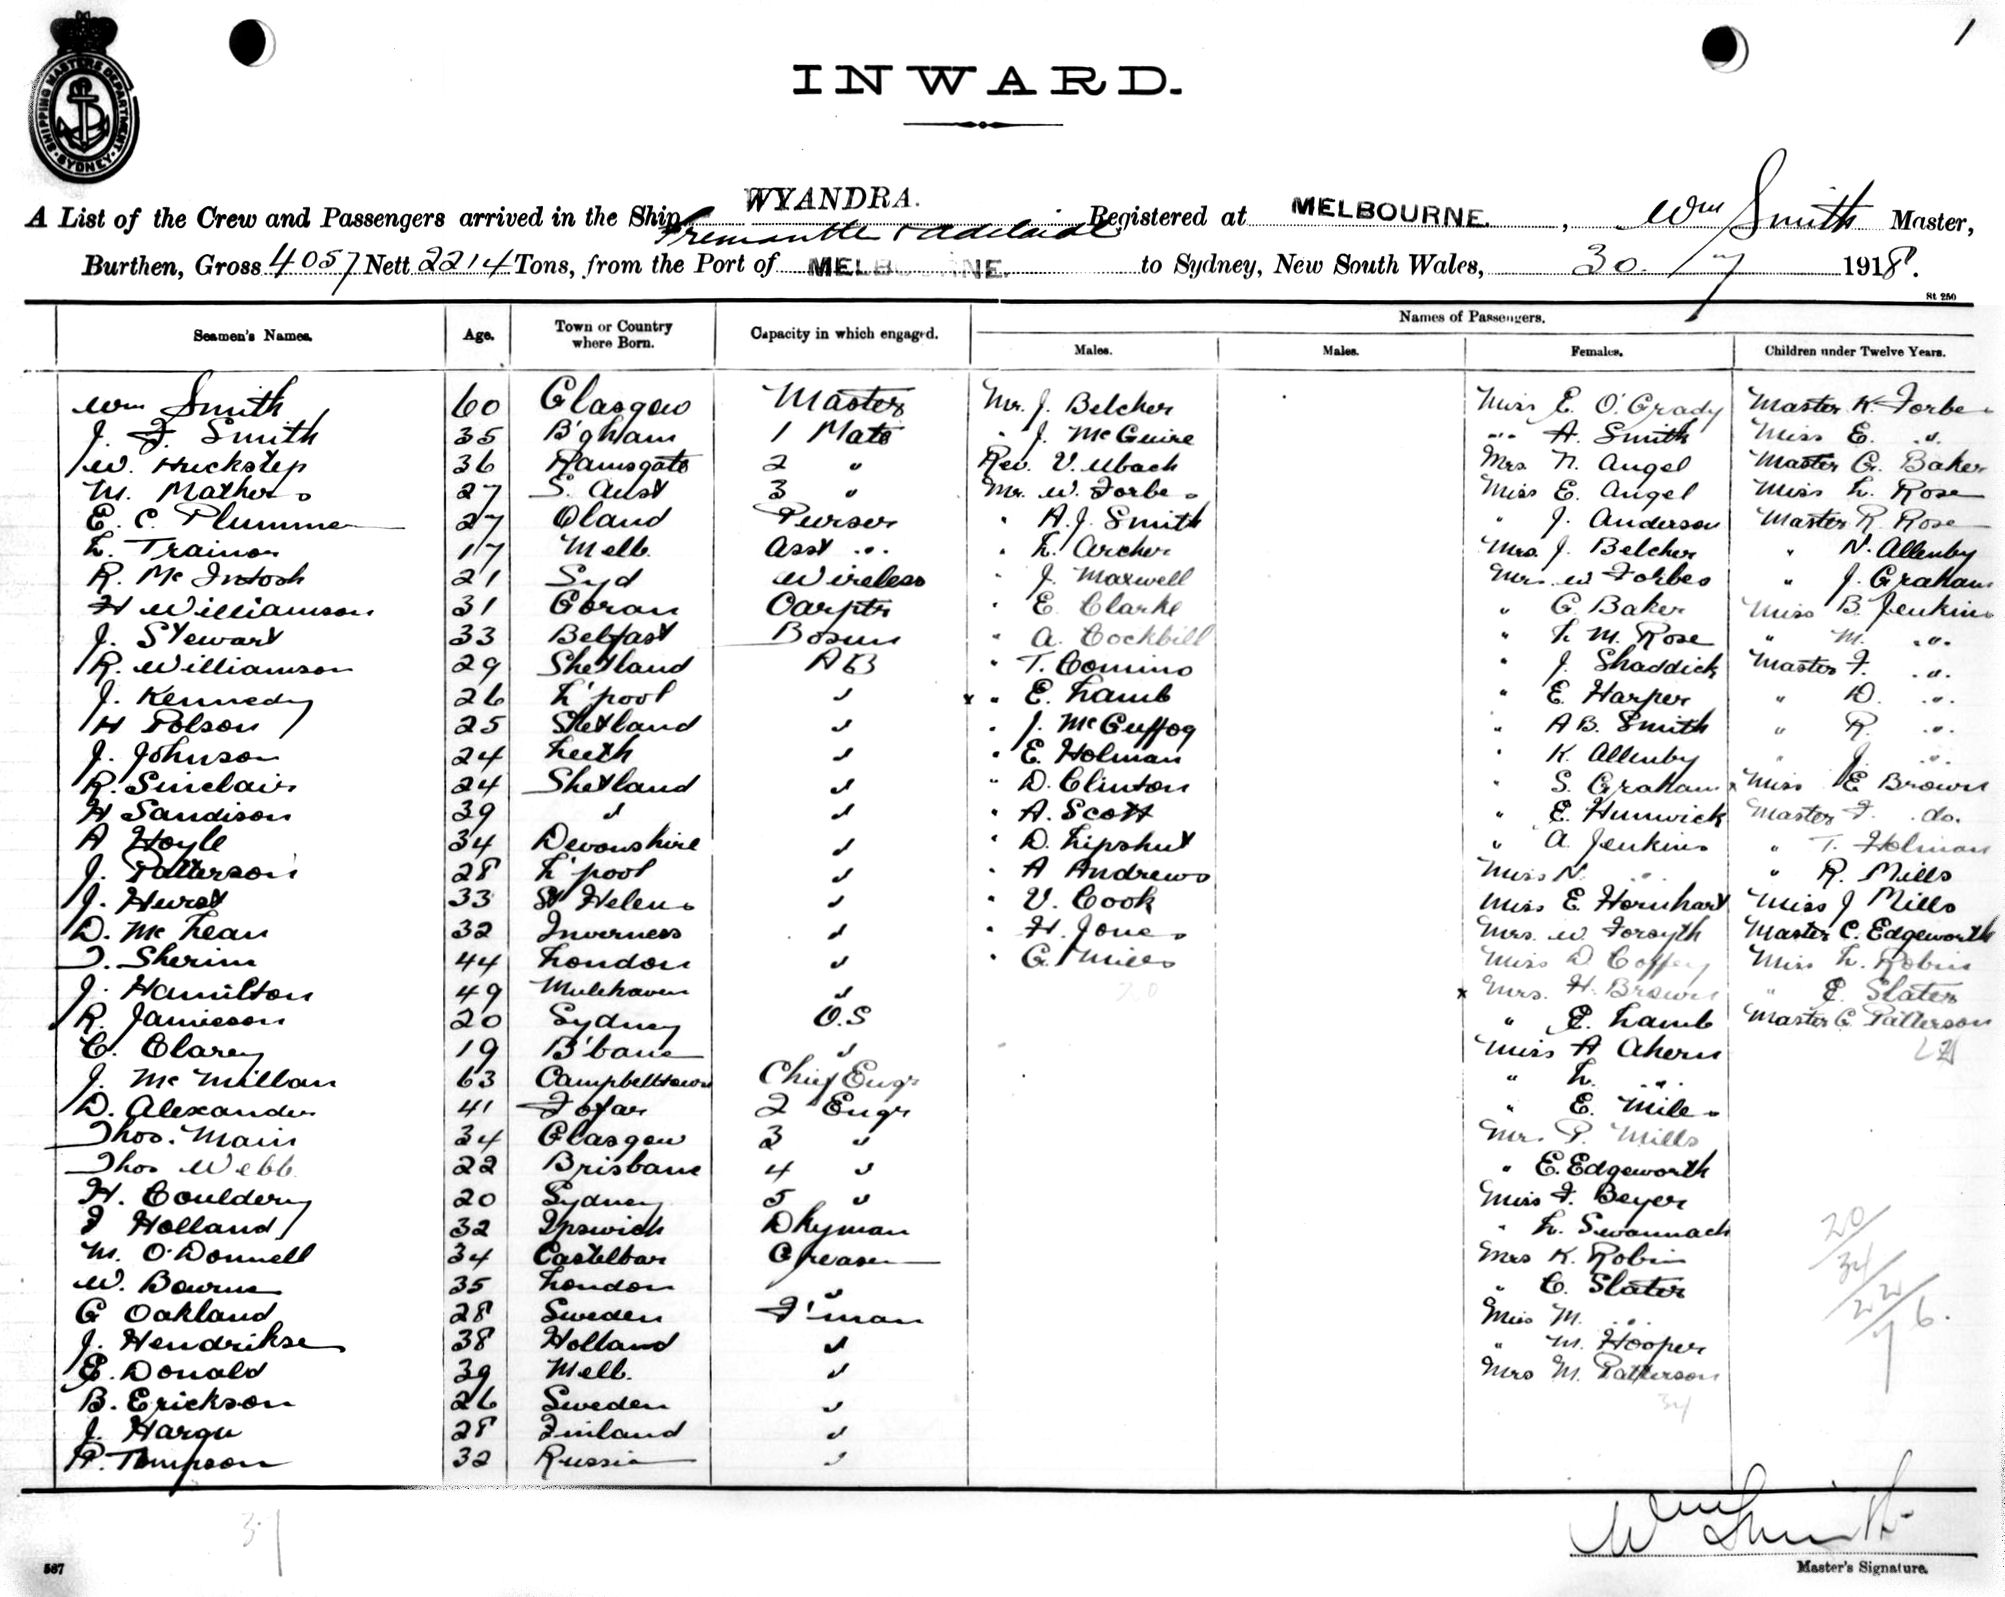 1
SHIPPING MASTERS DEPARTMENT SYDNEY
INWARD.
A List of the Crew and Passengers arrived in the Ship WYANDRA. Registered at MELBOURNE. , Wm Smith Master,
Fremantle & Adelaide
Burthen, Gross 4057 Nett 2214 Tons, from the Port of MELBOURNE. to Sydney, New South Wales, 30. / 7 1918.
St 250
Seamen's Names. Age. Town or Country where Born. Capacity in which engaged. Names of Passengers.
Males. Males. Females. Children under Twelve Years.
Wm Smith 60 Glasgow Master Mr. J. Belcher Miss E. O'Grady Master K. Forbes
J. F. Smith 35 B'gham 1 Mate " J. McGuire " A. Smith Miss E. "
W. Huckstep 36 Ramsgate 2 " Rev. V. Ubach Mrs. N. Angel Master G. Baker
M. Mathers 27 S. Aust 3 " Mr. W. Forbes Miss E. Angel Miss L. Rose
E. C. Plummer 27 Oland Purser " A. J. Smith " J. Anderson Master R. Rose
L. Trainor 17 Melb. Asst " " L. Archer Mrs. J. Belcher " N. Allenby
R. McIntosh 21 Syd Wireless " J. Maxwell Mrs W Forbes " J. Graham
H Williamson 31 Goran Carptr " E. Clarke " G. Baker Miss B. Jenkins
J. Stewart 33 Belfast Bosun " A. Cockbill " L. M. Rose " M. "
R. Williamson 29 Shetland AB " T. Comino " J. Shaddick Master F. "
J. Kennedy 26 L'pool " x " E. Lamb " E. Harper " D. "
H Polson 25 Shetland " " J. McGuffog " A B. Smith " R. "
J. Johnson 24 Leith " " E. Holman " K. Allenby " J. "
R. Sinclair 24 Shetland " " D. Clinton " S. Graham x Miss E Brown
H Sandison 39 " " " A. Scott " E. Hunwick Master F. do.
A Hoyle 34 Devonshire " " D. Lipshut " A. Jenkins " T. Holman
J. Patterson 28 L'pool " " A Andrews Miss N. " " R. Mills
J. Hurst 33 St Helens " " V. Cook Miss E. Hornhart Miss J Mills
D. McLean 32 Inverness " " H. Jones Mrs. W. Forsyth Master C. Edgeworth
T. Sherim 44 London " " G. Mills Miss D Coffey Miss L. Robin
J. Hamilton 49 " 20 x Mrs. H. Brown " E. Slater
R. Jamieson 20 Sydney O.S " E. Lamb Master G. Patterson
C. Clarey 19 B'bane " Miss A Ahern 22
J. McMillan 63 Campbelltown Chief Engr " L. "
D. Alexander 41 Fofar 2 Engr " E. Miles
Thos. Main 34 Glasgow 3 " Mrs P. Mills
Thos Webb. 22 Brisbane 4 " " E. Edgeworth
H. Couldery 20 Sydney 5 " Miss F. Beyer
F Holland 32 Ipswich Dkyman " L. Swannack 20
M. O'Donnell 34 Castelbar Greaser Mrs K. Robin 34
W. Bowns 35 London " " C. Slater 22
G Oakland 28 Sweden F'man Miss M. " 76.
J. Hendrikse 38 Holland " " M. Hooper
E. Donald 39 Melb. " Mrs M. Patterson
B. Erickson 26 Sweden " 34
J. Hargu 28 Finland "
P. Tompson 32 Russia "
Wm Smith
Master's Signature.
567